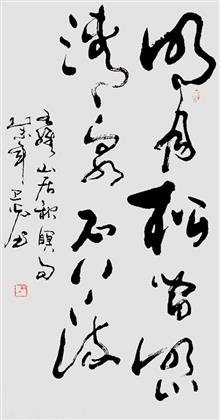 明月松間照
清泉石上流
王維山居秋暝句
年
书